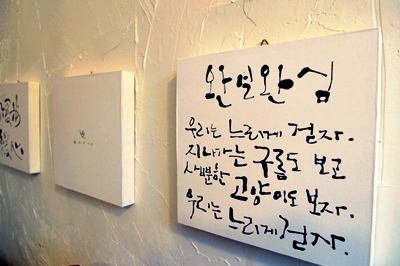 완열완심
우리는 느리게 걷자.
지나가는 구름도 보고
사뿐한 고양이도 보자.
우리는 느리게 걷자.